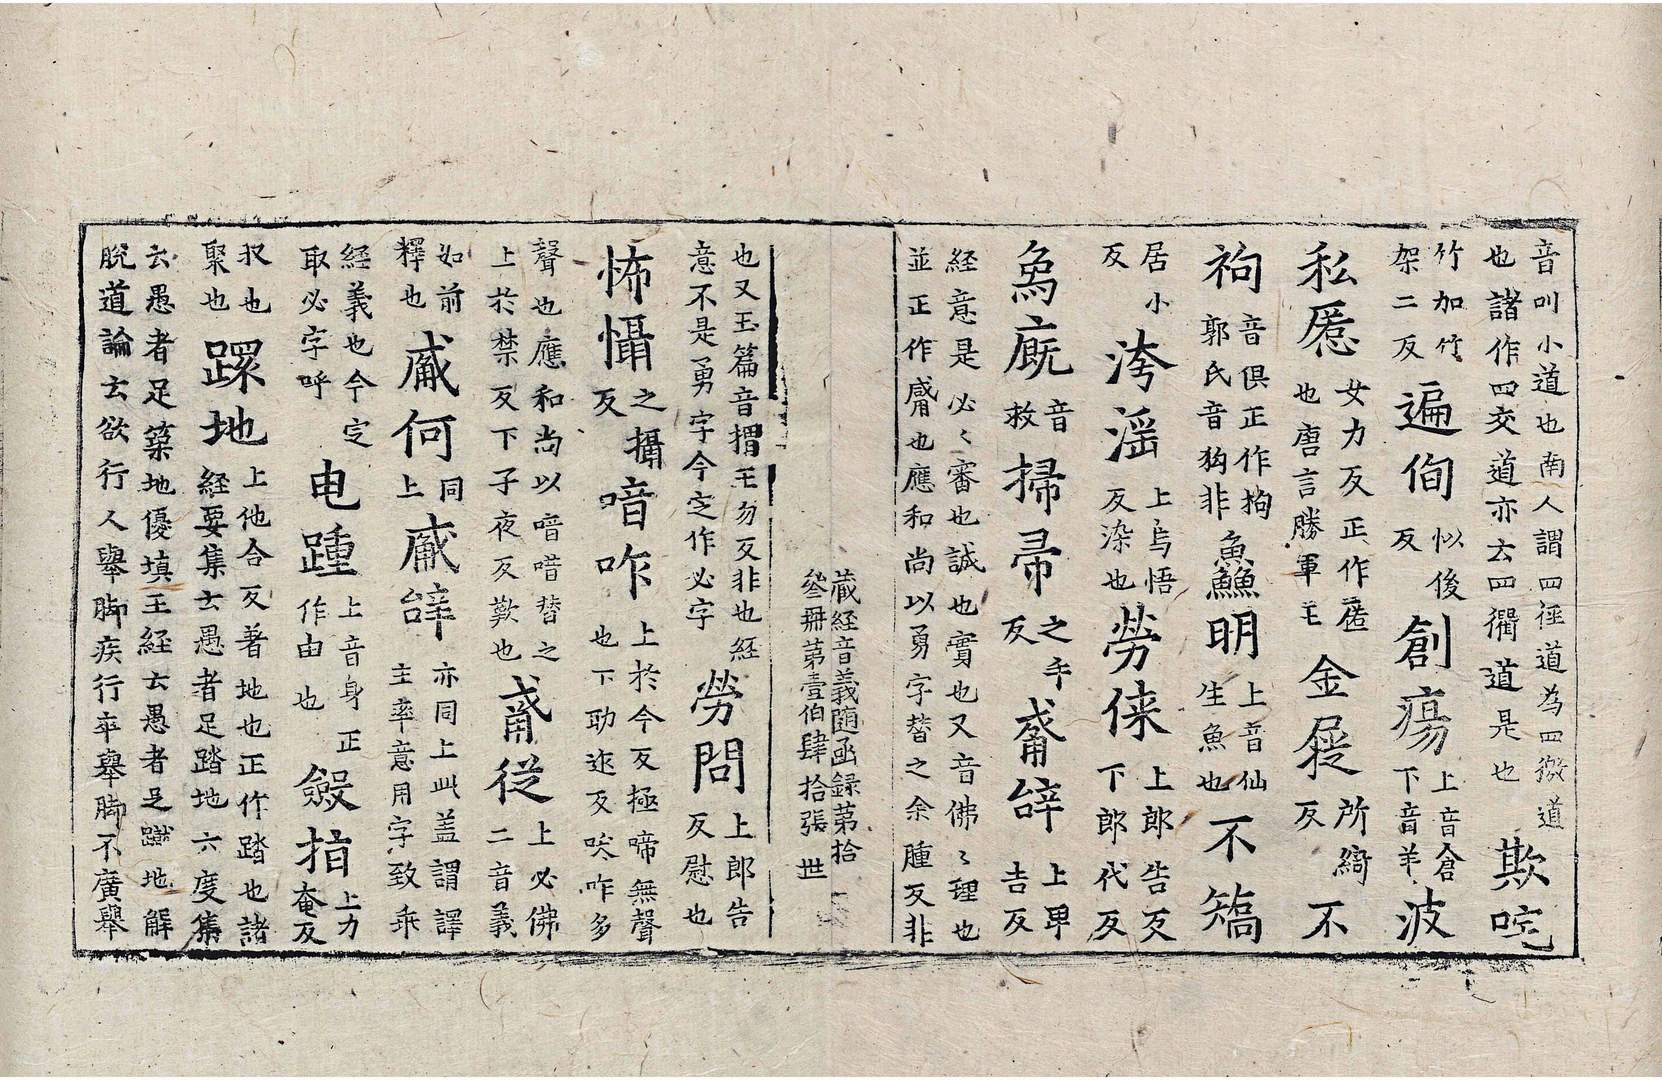 音叫小道也南人謂四徑道為四徼道
也諸作四交道亦云四衢道是也
欺
竹加竹
架二反
遍徇
似後
反
創瘍
上音倉
下音羊
波
私慝
女力反正作匿
也唐言勝軍王
金屣
所綺
反
不
袧
音俱正作拘
郭氏音狗非
鱻明
上音仙
生魚也
不矯
居小
反
洿淫
上烏悟
反染也
勞倈
上郎告反
下郎代反
為廐
音
救
掃帚
之手
反
辝
上卑
吉反
經意是必必審也誠也實也又音佛佛理也
並正作也應和尚以勇字替之余腫反非
藏經音義隨函錄第拾
叄冊第壹伯肆拾張 世
也又玉篇音𢯱王勿反非也經
意不是勇字今定作必字
勞問
上郎告
反慰也
怖懾
之攝
反
喑咋
上於今反極啼無聲
也下助迮反唉咋多
聲也應和尚以喑唶替之
上於禁反下子夜反歎也
從
上必佛
二音義
如前
釋也
何
同
上
辝
亦同上此蓋謂譯
主率意用字致乖
經義也今定
取必字呼
电踵
上音身正
作由也
㪘揞
上力
奄反
収也
聚也
踝地
上他合反著地也正作踏也諸
經要集云愚者足踏地六度集
云愚者足築地優填王經云愚者足蹴地解
脫道論云欲行人舉脚疾行卒舉脚不廣舉